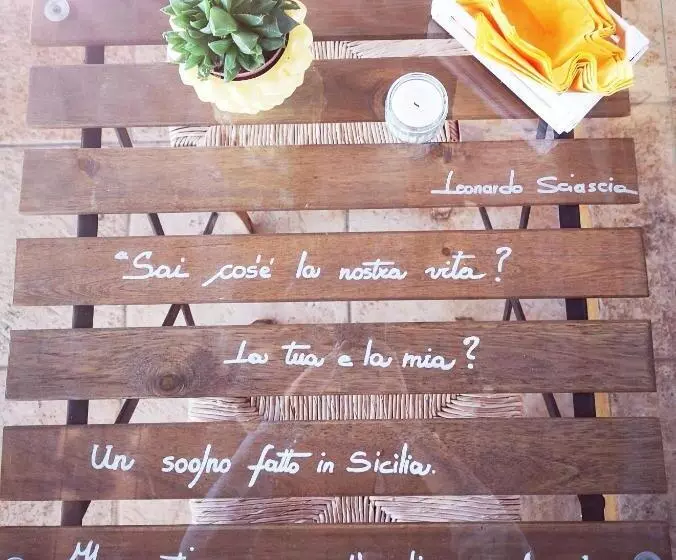 Leonardo Sciascia
"Sai cos'è la nostra vita?
La tua e la mia?
Un sogno fatto in Sicilia.